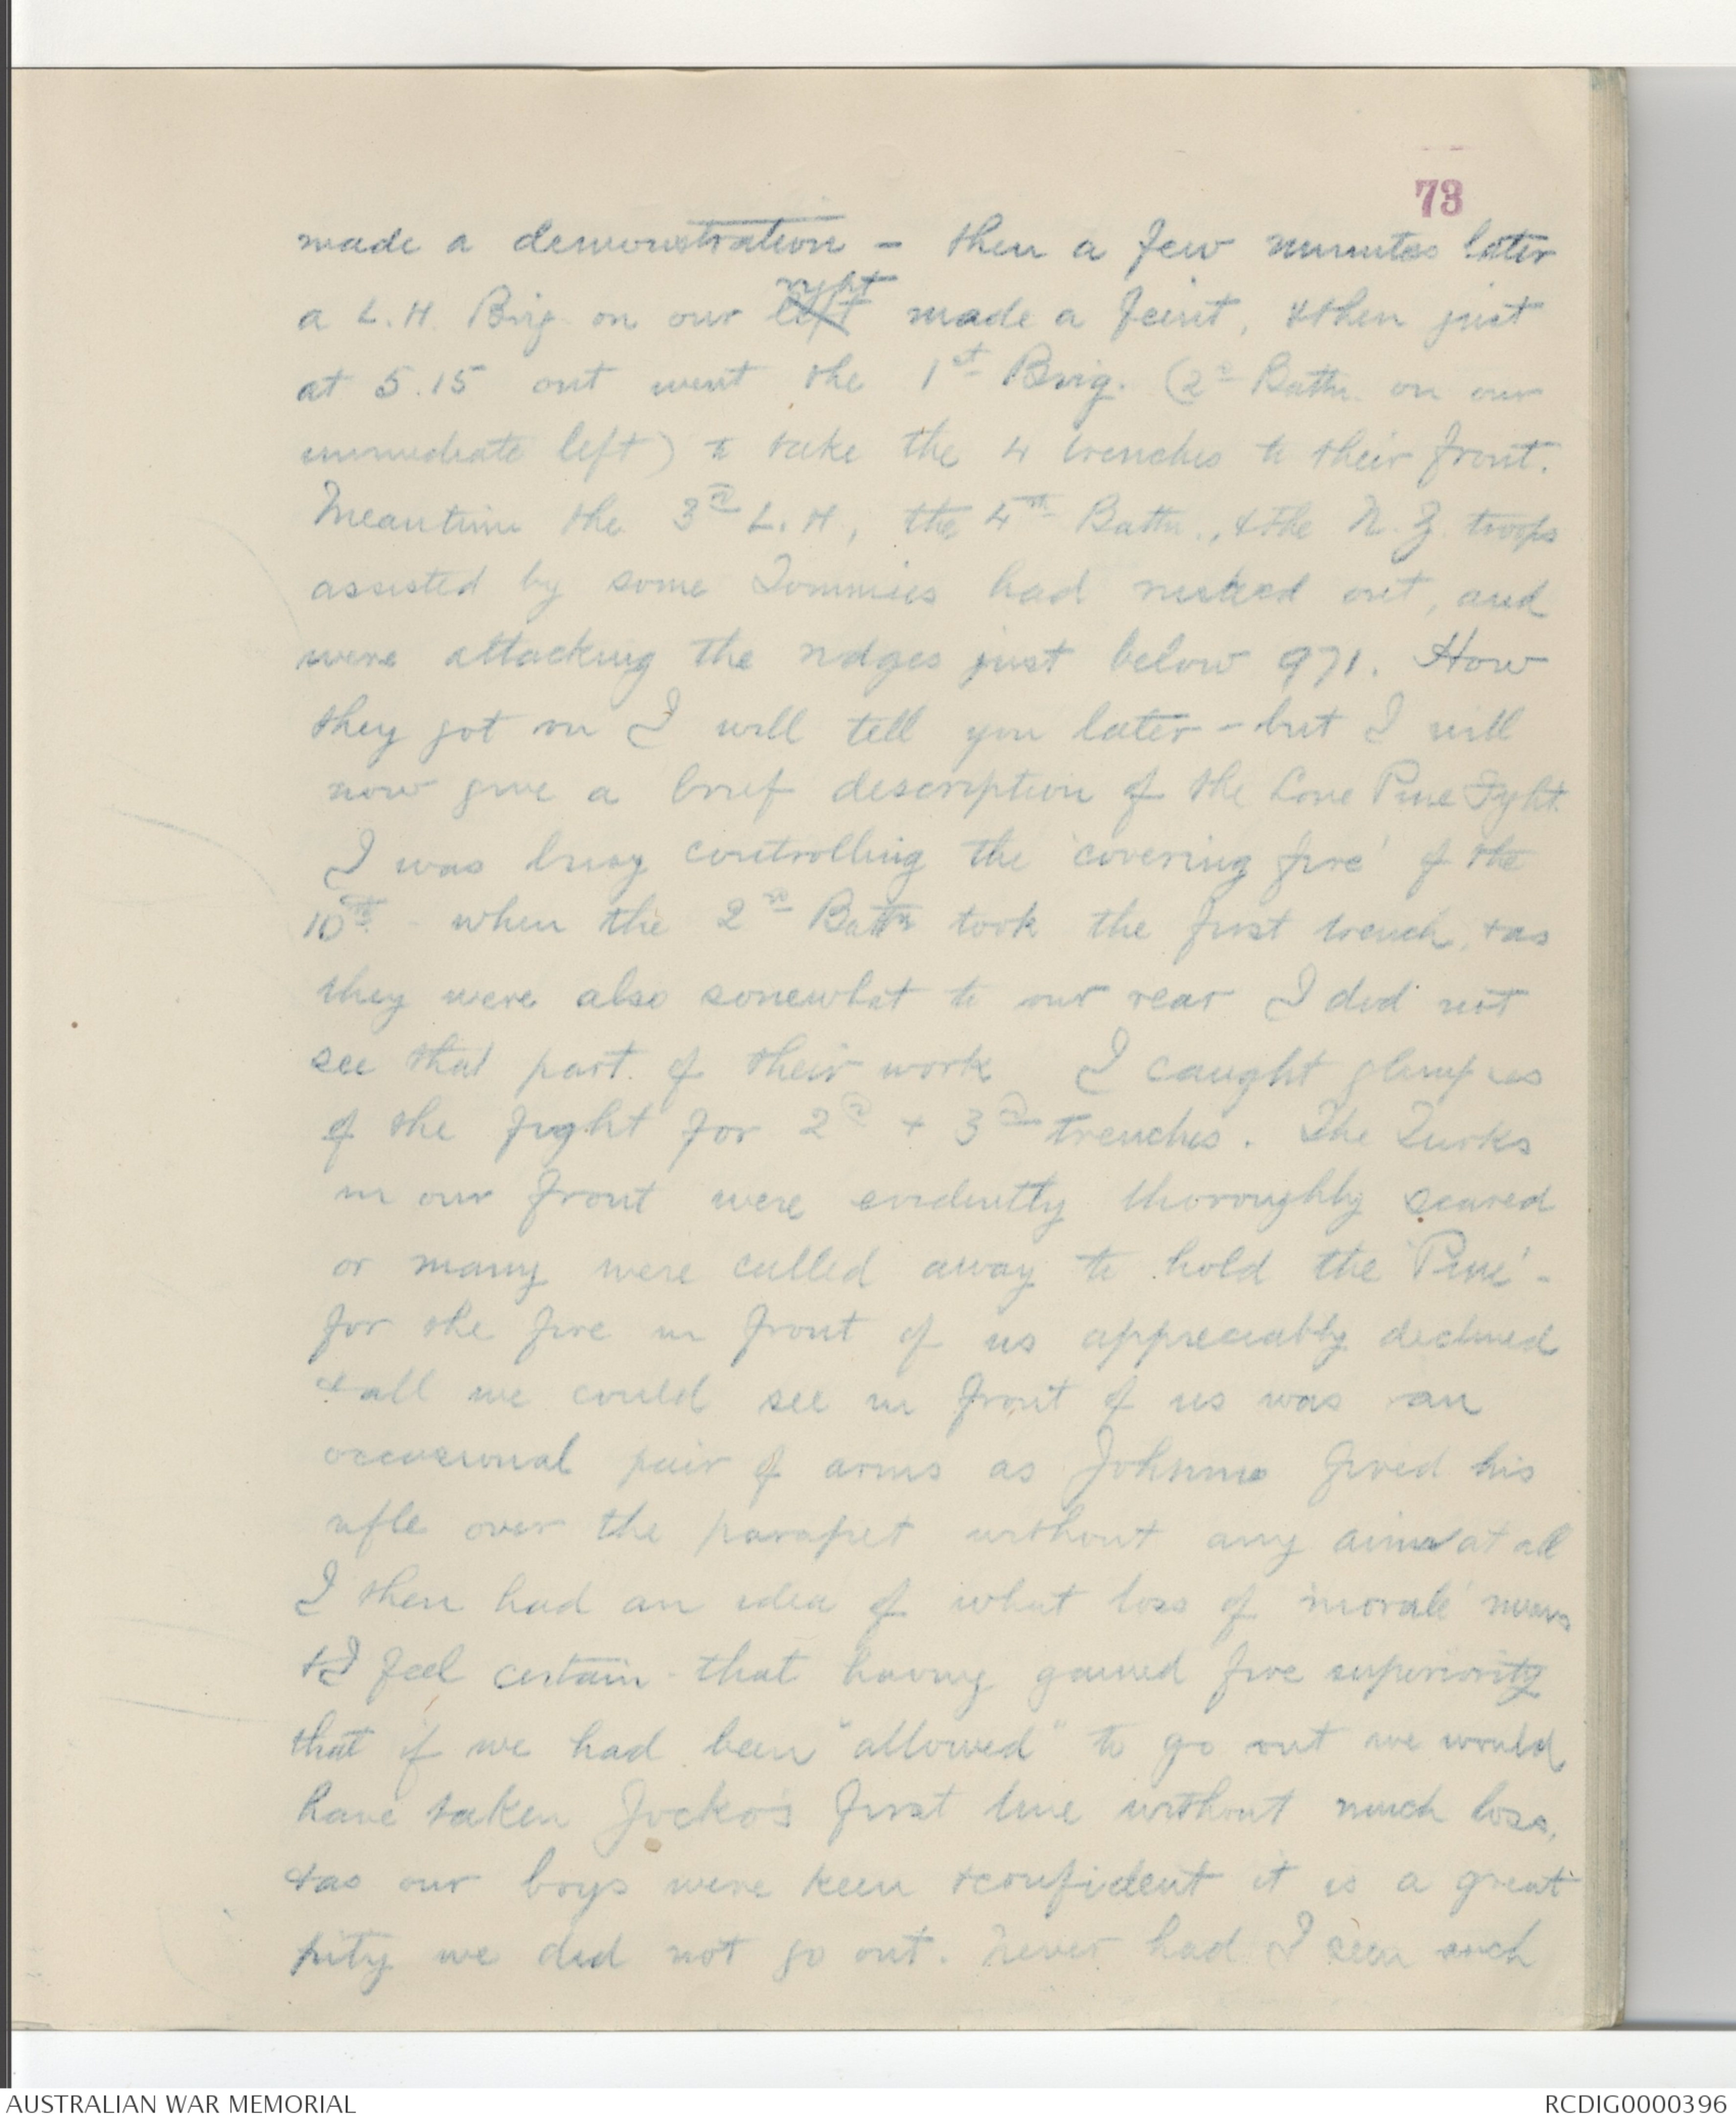 73
made a demonstration - then a few minutes later
a L.H. Brig on our left right made a feint, & then just
at 5.15 out went the 1st Brig. (2nd Battn. on our
immediate left) to take the 4 trenches to their front.
Meantime the 3rd L.H., the 4th Battn., & the N.Z. troops
assisted by some Tommies had rushed out, and
were attacking the ridges just below 971. How
they got on I will tell you later - but I will
now give a brief description of the Lone Pine Fight.
I was busy controlling the 'covering fire' of the
10th - when the 2nd Battn took the first trench, & as
they were also somewhat to our rear I did not
see that part of their work I caught glimpses
of the fight for 2nd + 3rd trenches. The Turks
in our front were evidently thoroughly scared
or many were called away to hold the 'Pine' -
for the fire in front of us appreciably declined
& all we could see in front of us was an
occasional pair of arms as Johnno fired his
rifle over the parapet without any aim at all
I then had an idea of what loss of 'morale' means
& I feel certain that having gained fire superiority
that if we had been "allowed" to go out we would
have taken Jocko's first line without much loss,
& as our boys were keen & confident it is a great
pity we did not go out. Never had I seen such
AUSTRALIAN WAR MEMORIAL
RCDIG0000396